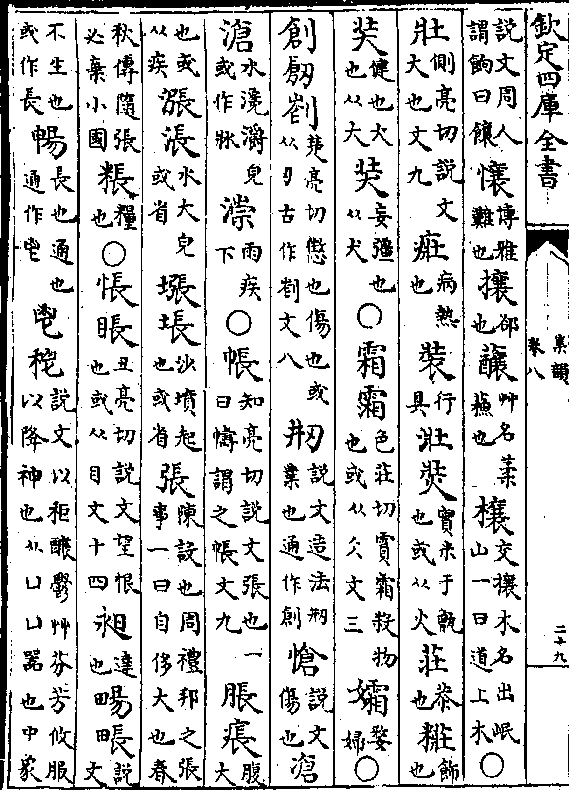 欽定四庫全書
集韻
卷八
二十九
說文周人謂餉曰饟 懹 博雅難也 攘 卻也 蘘 艸名葉蕪也 欀 交欀木名出岷山一曰道上木 ○
壯 側亮切說文大也文九 疘 病熱也 裝 行具 壯 㷍 實米于甑也或从火 莊 恭也 粧 飾也
奘 健也大也从大 奘 妄彊也从犬 ○ 霜 霜 色莊切霣霜殺物也或从欠文三 孀 婺婦 ○
創 刱 剙 楚亮切懲也傷也或从刃古作剙文八 刱 說文造法刱業也通作創 愴 說文傷也 滄
滄 水澆灂皃或作牀 漴 雨疾下 ○ 帳 知亮切說文張也一曰幬謂之帳文九 脹 痮 腹大
也或从疾 漲 涱 水大皃或省 墇 㙊 沙墳起也或省 張 陳設也周禮邦之張事一曰自侈大也春
秋傳隨張必棄小國 粻 糧也 ○ 悵 䀯 丑亮切說文望恨也或从目文十四 昶 達也 畼 䀯 說文
不生也或作長 暢 長也通也通作鬯 鬯 䄯 說文以秬釀鬱艸芬芳攸服以降神也从凵凵器也中象